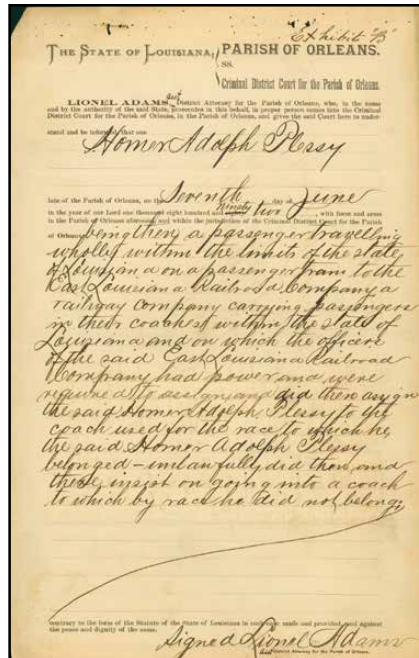 Exhibit "B"
THE STATE OF LOUISIANA, PARISH OF ORLEANS.
SS.
Criminal District Court for the Parish of Orleans.
LIONEL ADAMS, Asst District Attorney for the Parish of Orleans, who, in the name
and by the authority of the said State, prosecutes in this behalf, in proper person comes into the Criminal
District Court for the Parish of Orleans, in the Parish of Orleans, and gives the said Court here to under-
stand and be informed, that one
Homer Adolph Plessy
late of the Parish of Orleans, on the Seventh day of June
in the year of our Lord one thousand eight hundred and ninety two, with force and arms
in the Parish of Orleans aforesaid, and within the jurisdiction of the Criminal District Court for the Parish
of Orleans being then a passenger travelling
wholly within the limits of the state
of Louisiana on a passenger train to the
East Louisiana Railroad Company a
railway company carrying passengers
in their coaches within the state of
Louisiana and on which the officers
of the said East Louisiana Railroad
Company had power and were
required to assign and did then assign
the said Homer Adolph Plessy to the
coach used for the race to which he
the said Homer Adolph Plessy
belonged – unlawfully did then and
there insist on going into a coach
to which by race he did not belong;
contrary to the form of the Statute of the State of Louisiana in such case made and provided, and against
the peace and dignity of the same.
Signed Lionel Adams
Asst District Attorney for the Parish of Orleans.